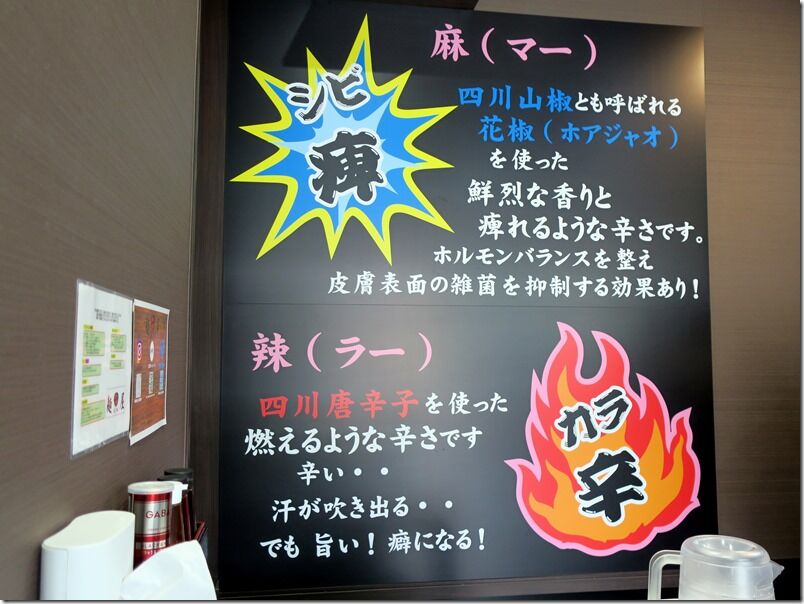 シビ
痺
麻(マー)
四川山椒とも呼ばれる
花椒(ホアジャオ)
を使った
鮮烈な香りと
痺れるような辛さです。
ホルモンバランスを整え
皮膚表面の雑菌を抑制する効果あり!
辣(ラー)
四川唐辛子を使った
燃えるような辛さです
辛い・・
汗が吹き出る・・
でも 旨い!癖になる!
カラ
辛
GABA